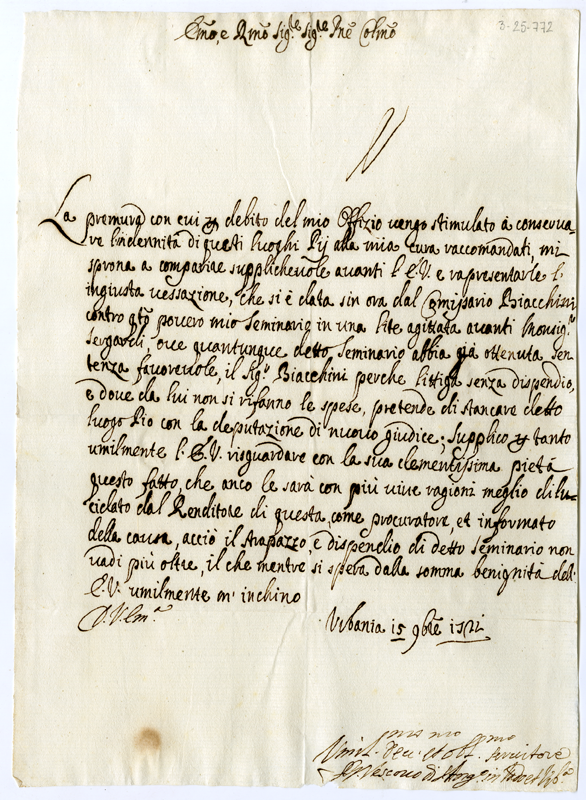 3-25-772
Emo, e Rmo Sigr. Sigr. Pne Colmo
La premura con cui p debito del mio Offizio vengo stimulato à conserva-
re l'indennità di questi luoghi Pij alla mia cura raccomandati, mi
sprona a comparire supplichevole avanti l'E.V. e rapresentarle l'
ingiusta vessazione, che si è data sin ora dal Comissario Biacchini
contro qto povero mio Seminario in una lite agitata avanti Monsigr.
Sergardi, ove quantunque detto Seminario abbia già ottenuta sen-
tenza favorevole, il Sigr. Biacchini perche littiga senza dispendio,
e dove da lui non si rifanno le spese, pretende di stancare detto
luogo Pio con la deputazione di nuovo giudice; Supplico p tanto
umilmente l'E.V. risguardare con la sua clementissima pietà
questo fatto, che anco le sarà con più vive ragioni meglio dilu-
cidato dal Renditore di questa, come procuratore, et informato
della causa, acciò il strapazzo, e dispendio di detto Seminario non
vadi più oltre, il che mentre si spera dalla somma benignità dell'
E.V. umilmente m'inchino
D.V. Em.a
Urbania 15 9bre
Umil. Dev. et Obl. Servitore
Vescovo di